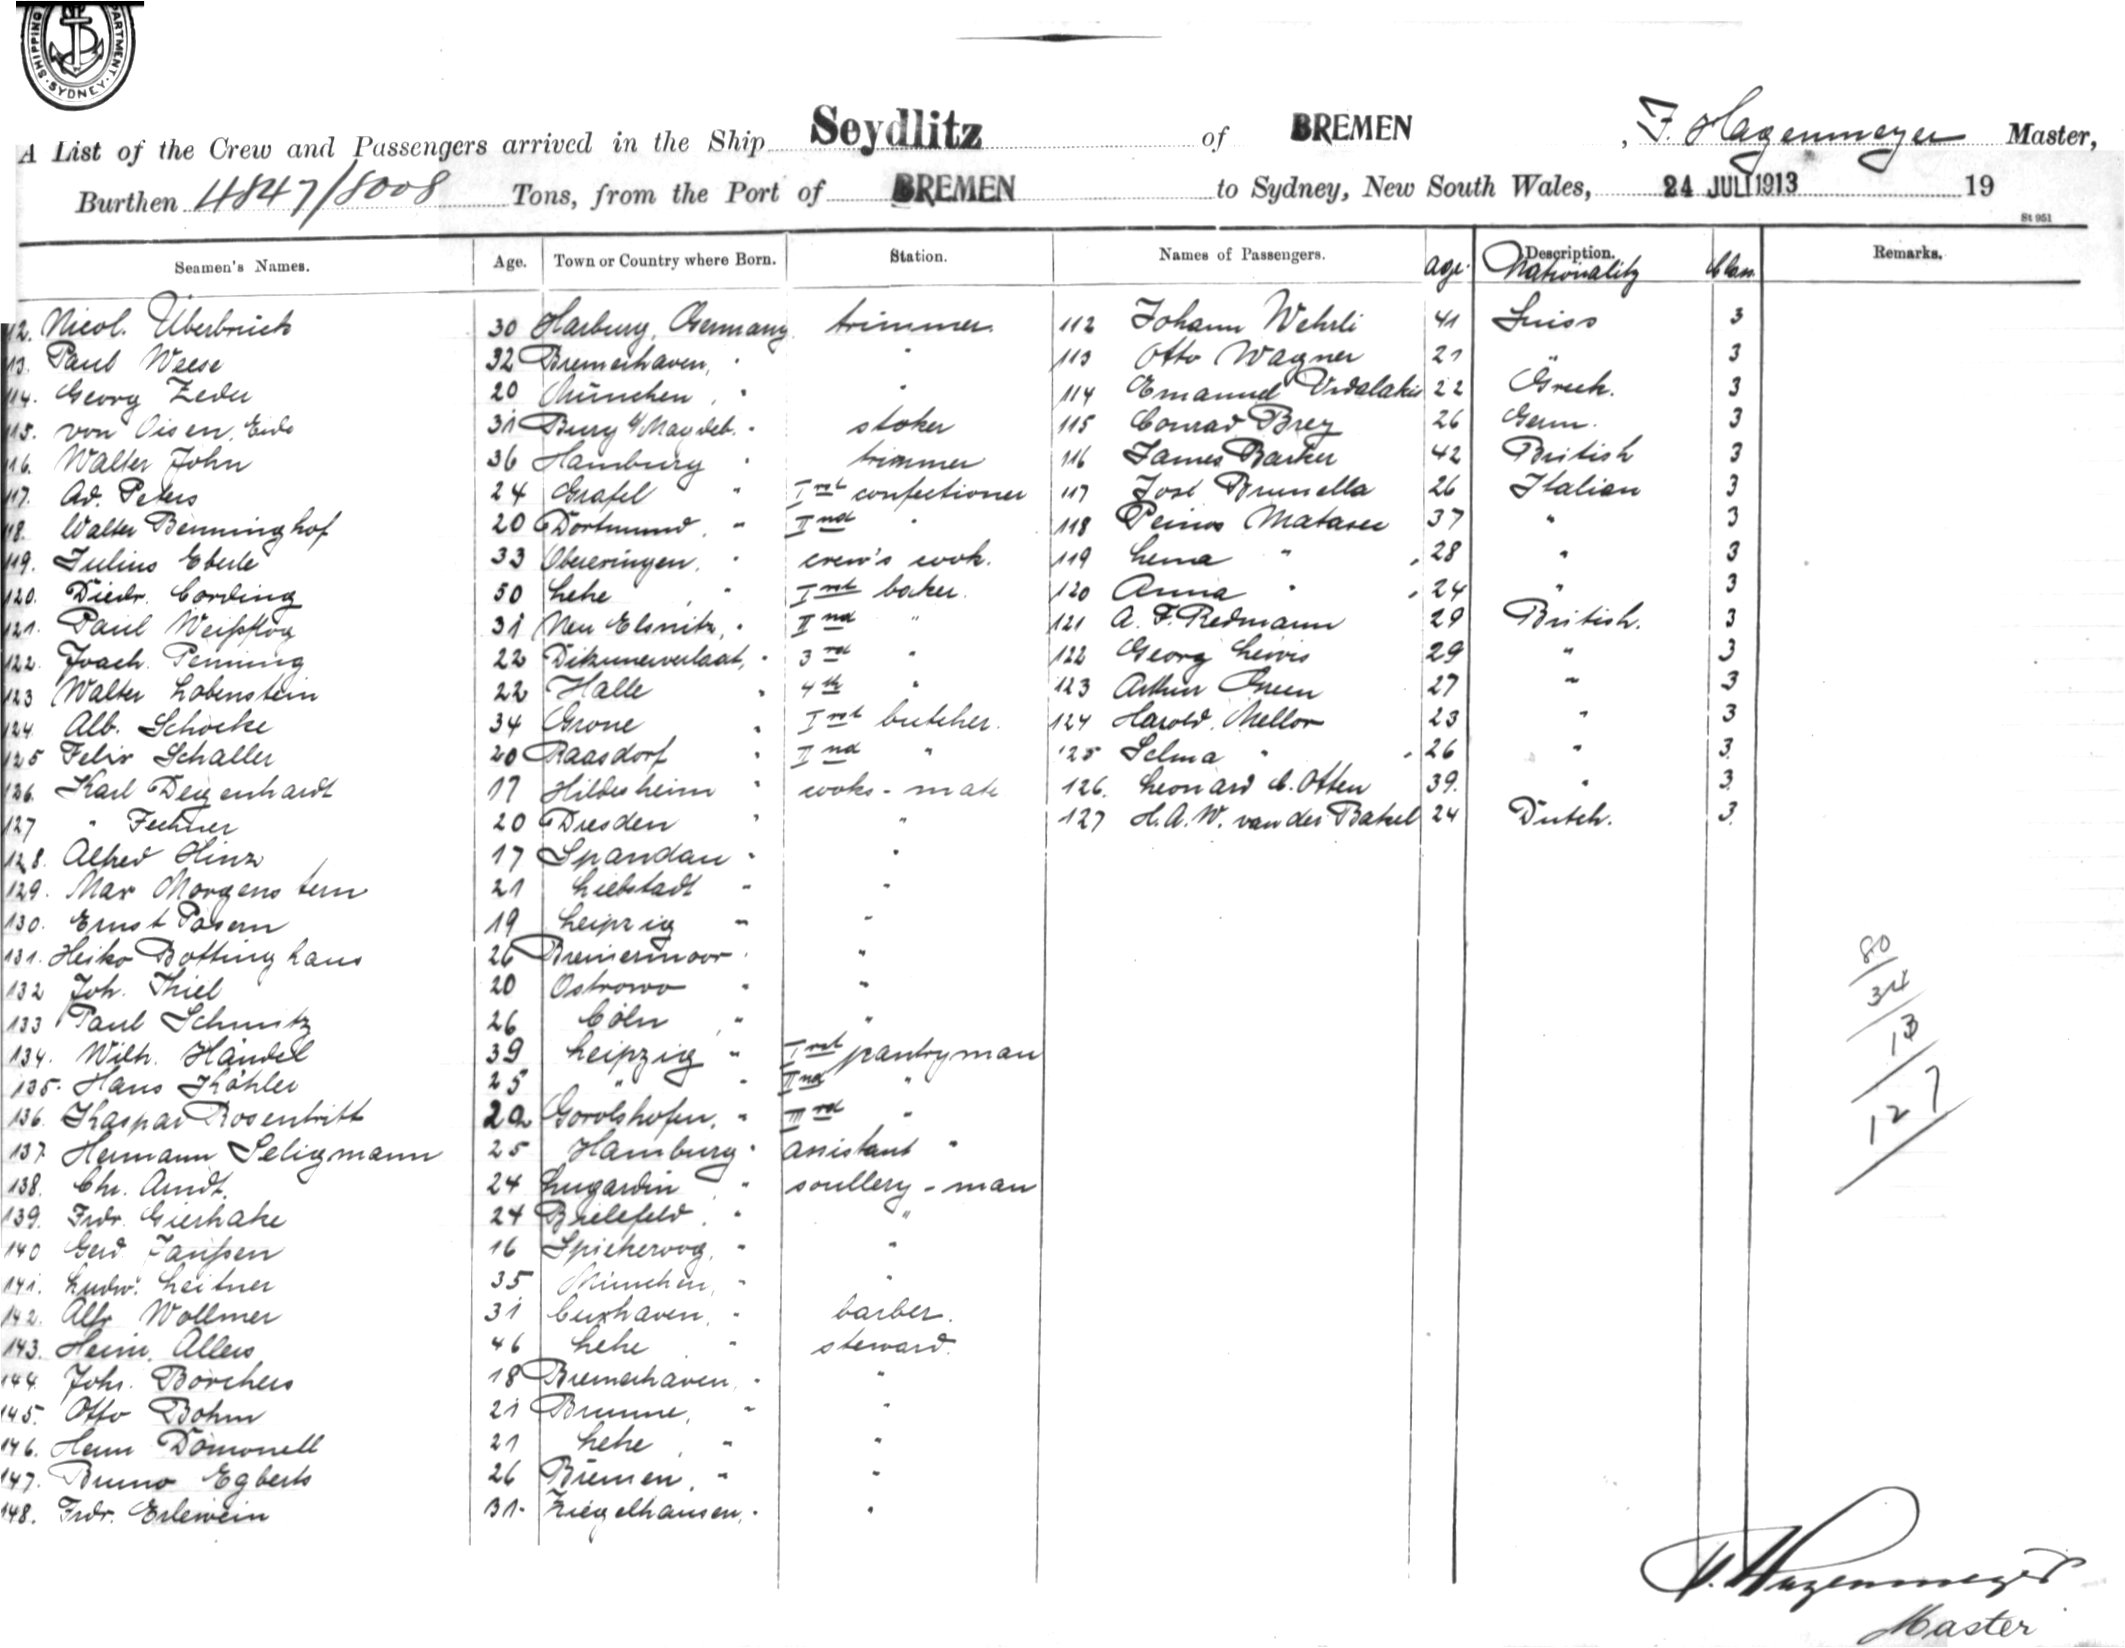 SHIPPING DEPARTMENT. SYDNEY
A List of the Crew and Passengers arrived in the Ship Seydlitz of BREMEN, F. Hagenmeyer Master,
Burthen 4847/8008 Tons, from the Port of BREMEN to Sydney, New South Wales, 24 JULI 1913 19
St 951
Seamen's Names. Age. Town or Country where Born. Station. Names of Passengers. Age. Description. Nationality Class Remarks.
12. Nicol. Überbrück 30 Harburg, Germany trimmer 112 Johann Wehrli 41 Suiss 3
13. Paul Weese 32 Bremerhaven, " " 113 Otto Wagner 21 " 3
114. Georg Zeder 20 München, " " 114 Emanuel Vidalakis 22 Greek. 3
115. von Oisen, 31 Burg b/Magdeb. " stoker 115 Conrad Brey 26 Germ. 3
116. Walter John 36 Hamburg " trimmer 116 James Barker 42 British 3
117. Ad. Peters 24 Grafel " Irst confectioner 117 José Brunella 26 Italian 3
118. Walter Benninghof 20 Dortmund, " IInd " 118 Matasee 37 " 3
119. Julius Eberle 33 " crew's cook. 119 Lena " 28 " 3
120. Diedr. Cording 50 Lehe, " Irst baker. 120 Anna " 24 " 3
121. Paul Weißflog 31 Neu Elsnitz, " IInd " 121 A. F. Redmann 29 British. 3
122. Joach. Penning 22 " 3rd " 122 Georg Lewis 29 " 3
123 Walter Lobenstein 22 Halle " 4th " 123 Arthur Green 27 " 3
124. Alb. Schoeke 34 Grone " Irst butcher. 124 Harold Mellor 23 " 3
125 Felix Schaller 20 Raasdorf " IInd " 125 Selma " 26 " 3.
126. Karl Degenhardt 17 Hildesheim " cooks-mate 126. Leonard C. Otten 39. " 3.
127 " Fechner 20 Dresden " " 127 H. A. W. van der Bakel 24 Dutch. 3.
128. Alfred Hinz 17 Spandau " "
129. Max Morgenstern 21 Liebstadt " "
130. Ernst Posern 19 Leipzig " "
131. Heiko Bottinghaus 26 Bremermoor " "
132 Joh. Thiel 20 Ostrowo " "
133 Paul Schmitz 26 Cöln, " "
134. Wilh. Händel 39 Leipzig " Irst pantryman
135. Hans Köhler 25 " " IInd "
136. Kaspar Rosentritt 22 Gorolshofen, " IIIrd "
137. Hermann Seligmann 25 Hamburg " assistant "
138. Chr. Arndt. 24 Lugardin, " scullery-man
139. Frdr. Gierhake 24 Bielefeld, " "
140 Gerd Janßen 16 Spiekeroog, " "
141. Ludw. Leitner 35 München, " "
142. Alfr. Wollmer 31 Cuxhaven, " barber.
143. Heinr. Allers 46 Lehe " steward.
144. Johs. Borchers 18 Bremerhaven, " "
145. Otto Bohm 21 Brunne, " "
146. Herm Domonell 21 Lehe, " "
147. Bruno Egberts 26 Bremen, " "
148. Frdr. Erlewein 31. Ziegelhausen, " "
80
34
13
127
F. Hagenmeyer
Master